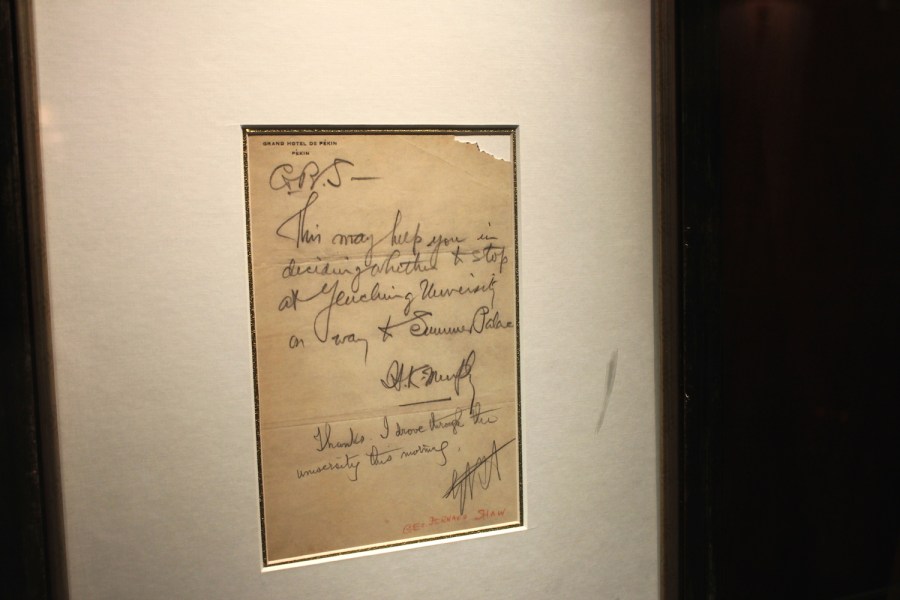 GRAND HOTEL DE PÉKIN
PÉKIN
G.B.S —
This may help you in
deciding whether to stop
at Yenching University
on way to Summer Palace
H.K. Murphy
Thanks. I drove through the
university this morning.
SHAW